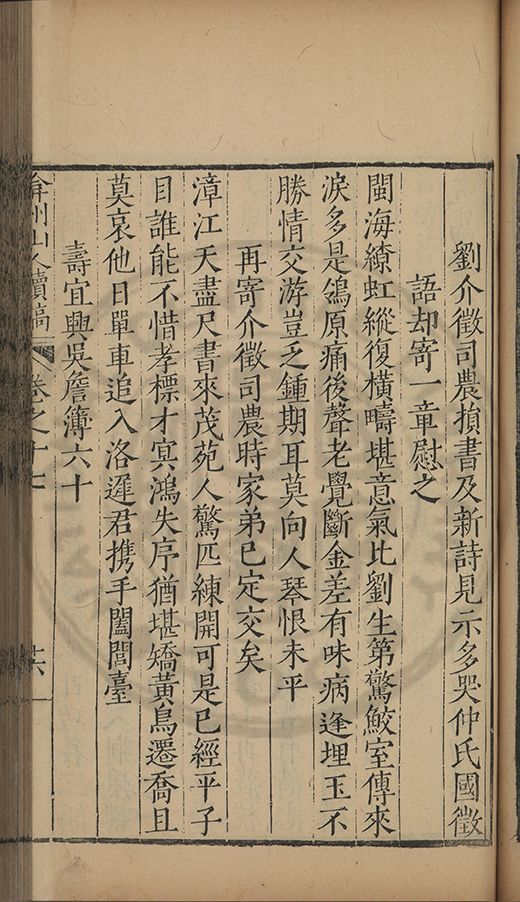 劉介徵司農損書及新詩見示多哭仲氏國徵
語却寄一章慰之
閩海繚虹縱復橫疇堪意氣比劉生第驚鮫室傳來
淚多是鴒原痛後聲老覺斷金差有味病逢埋玉不
勝情交游豈乏鍾期耳莫向人琴恨未平
再寄介徵司農時家弟已定交矣
漳江天盡尺書來茂苑人驚匹練開可是已經平子
目誰能不惜孝標才冥鴻失序猶堪矯黃鳥遷喬且
莫哀他日單車追入洛遲君携手闔閭臺
壽宜興吳詹簿六十
弇州山人續稿 卷之十七 十六